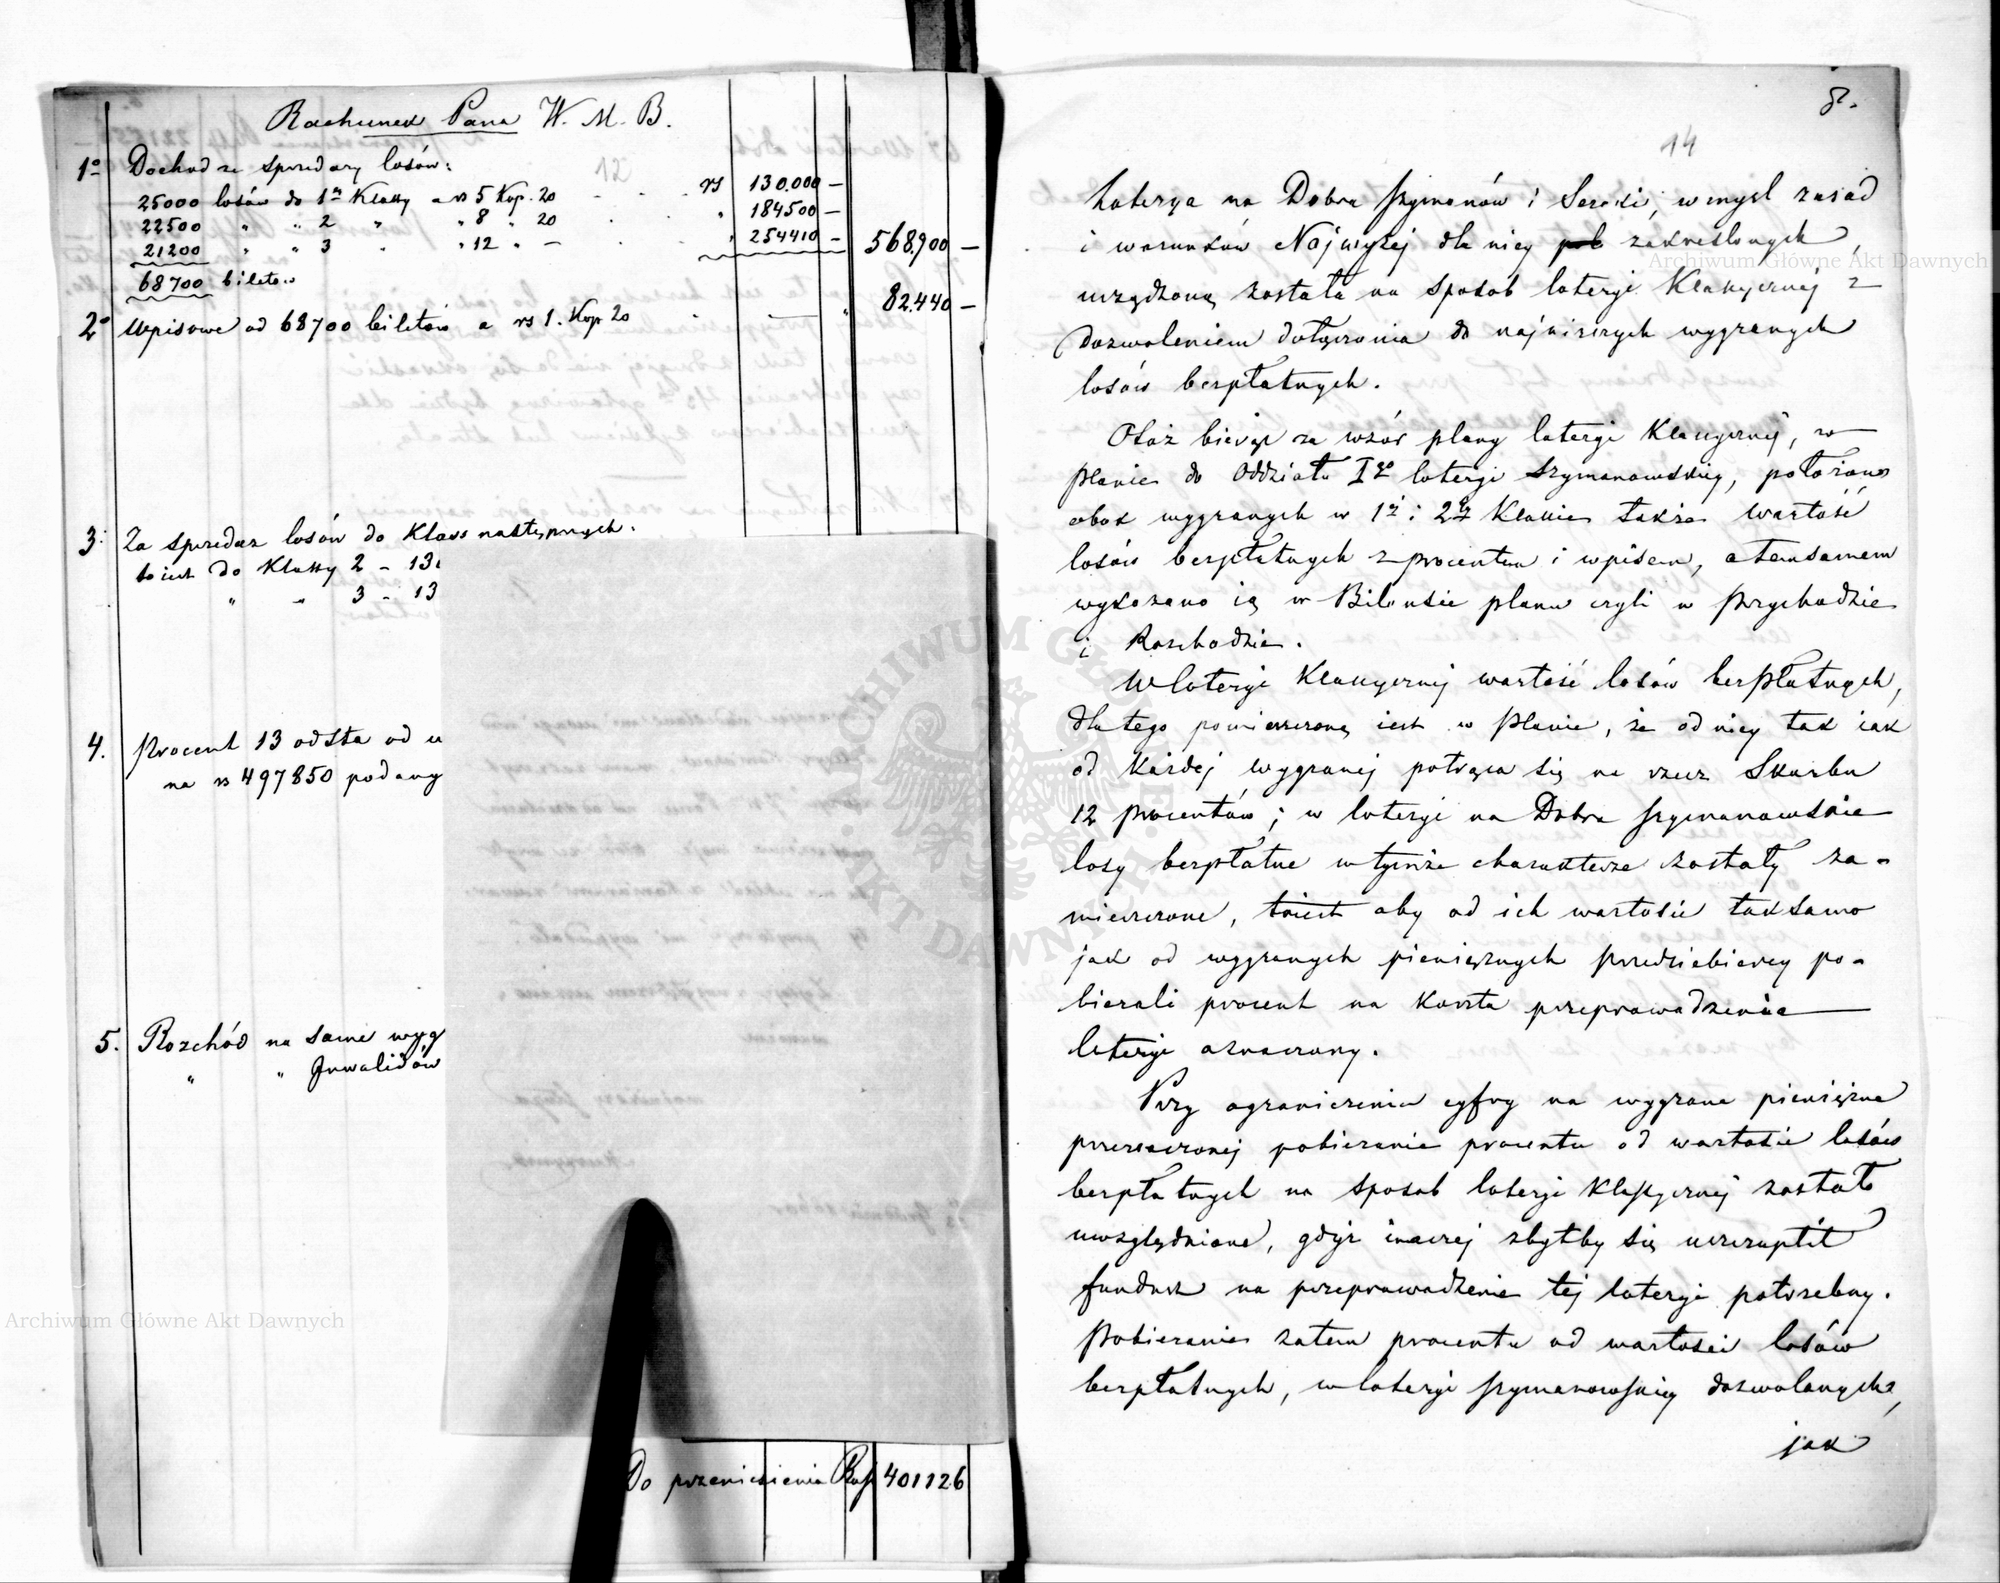 Rachunek Pana W. M. B.
12
1o Dochód ze sprzedaży losów:
25000 losów do 1ej Klassy a rs 5 Kop. 20 - . . rs 130.000 —
22500 " " 2 " " 8 " 20 " 184500 —
21200 " " 3 " " 12 " — . . " 254410 — 568,900 —
68700 biletów
2o Wpisowe od 68700 biletów a rs 1. Kop 20 — " 82.440 —
3. Za sprzedaż losów do Klass następnych.
to iest do Klassy 2 - 13
" " 3 - 13
4. Procent 13 odsta od
na rs 497850 podany
5. Rozchód na same wyg
" " Inwalidów
Do przeniesienia Rsr 401126
8.
14
Loterya na Dobra Szymanów i Seroki, w myśl zasad
i warunków Najwyżej dla niey zakreślonych,
urządzoną została na sposób loteryi Klassycznéj z
dozwoleniem dołączenia do najniższych wygranych
losów bezpłatnych.
Otóż biorąc za wzór plany loteryi Klassycznéj, w
planie do Oddziału Igo loteryi Szymanowskiey, położono
obok wygranych w 1éj i 2éj Klassie także wartość
losów bezpłatnych z procentem i wpisem, a temsamem
wykazano ią w Bilansie planu czyli w Przychodzie
i Rozchodzie.
W loteryi Klassycznéj wartość losów bezpłatnych,
dla tego pomieszczoną iest w Planie, że od niey tak iak
od każdéj wygranéj potrąca się na rzecz Skarbu
12 procentów; w loteryi na Dobra Szymanowskie
losy bezpłatne w tymże charakterze zostały za-
mieszczone, toiest aby od ich wartości taksamo
jak od wygranych pieniężnych przedsiębiercy po-
bierali procent na koszta przeprowadzenia
loteryi oznaczony.
Przy ograniczeniu cyfry na wygrane pieniężne
przeznaczonéj pobieranie procentu od wartości losów
bezpłatnych na sposób loteryi Klassycznéj zostało
uwzględnione, gdyż inaczéj zbytby się uszczuplił
fundusz na przeprowadzenie téj loteryi potrzebny.
Pobieranie zatem procentu od wartości losów
bezpłatnych, w loteryi Szymanowskiéy dozwolonych,
jak
ARCHIWUM GŁÓWNE AKT DAWNYCH
Archiwum Główne Akt Dawnych
Archiwum Główne Akt Dawnych